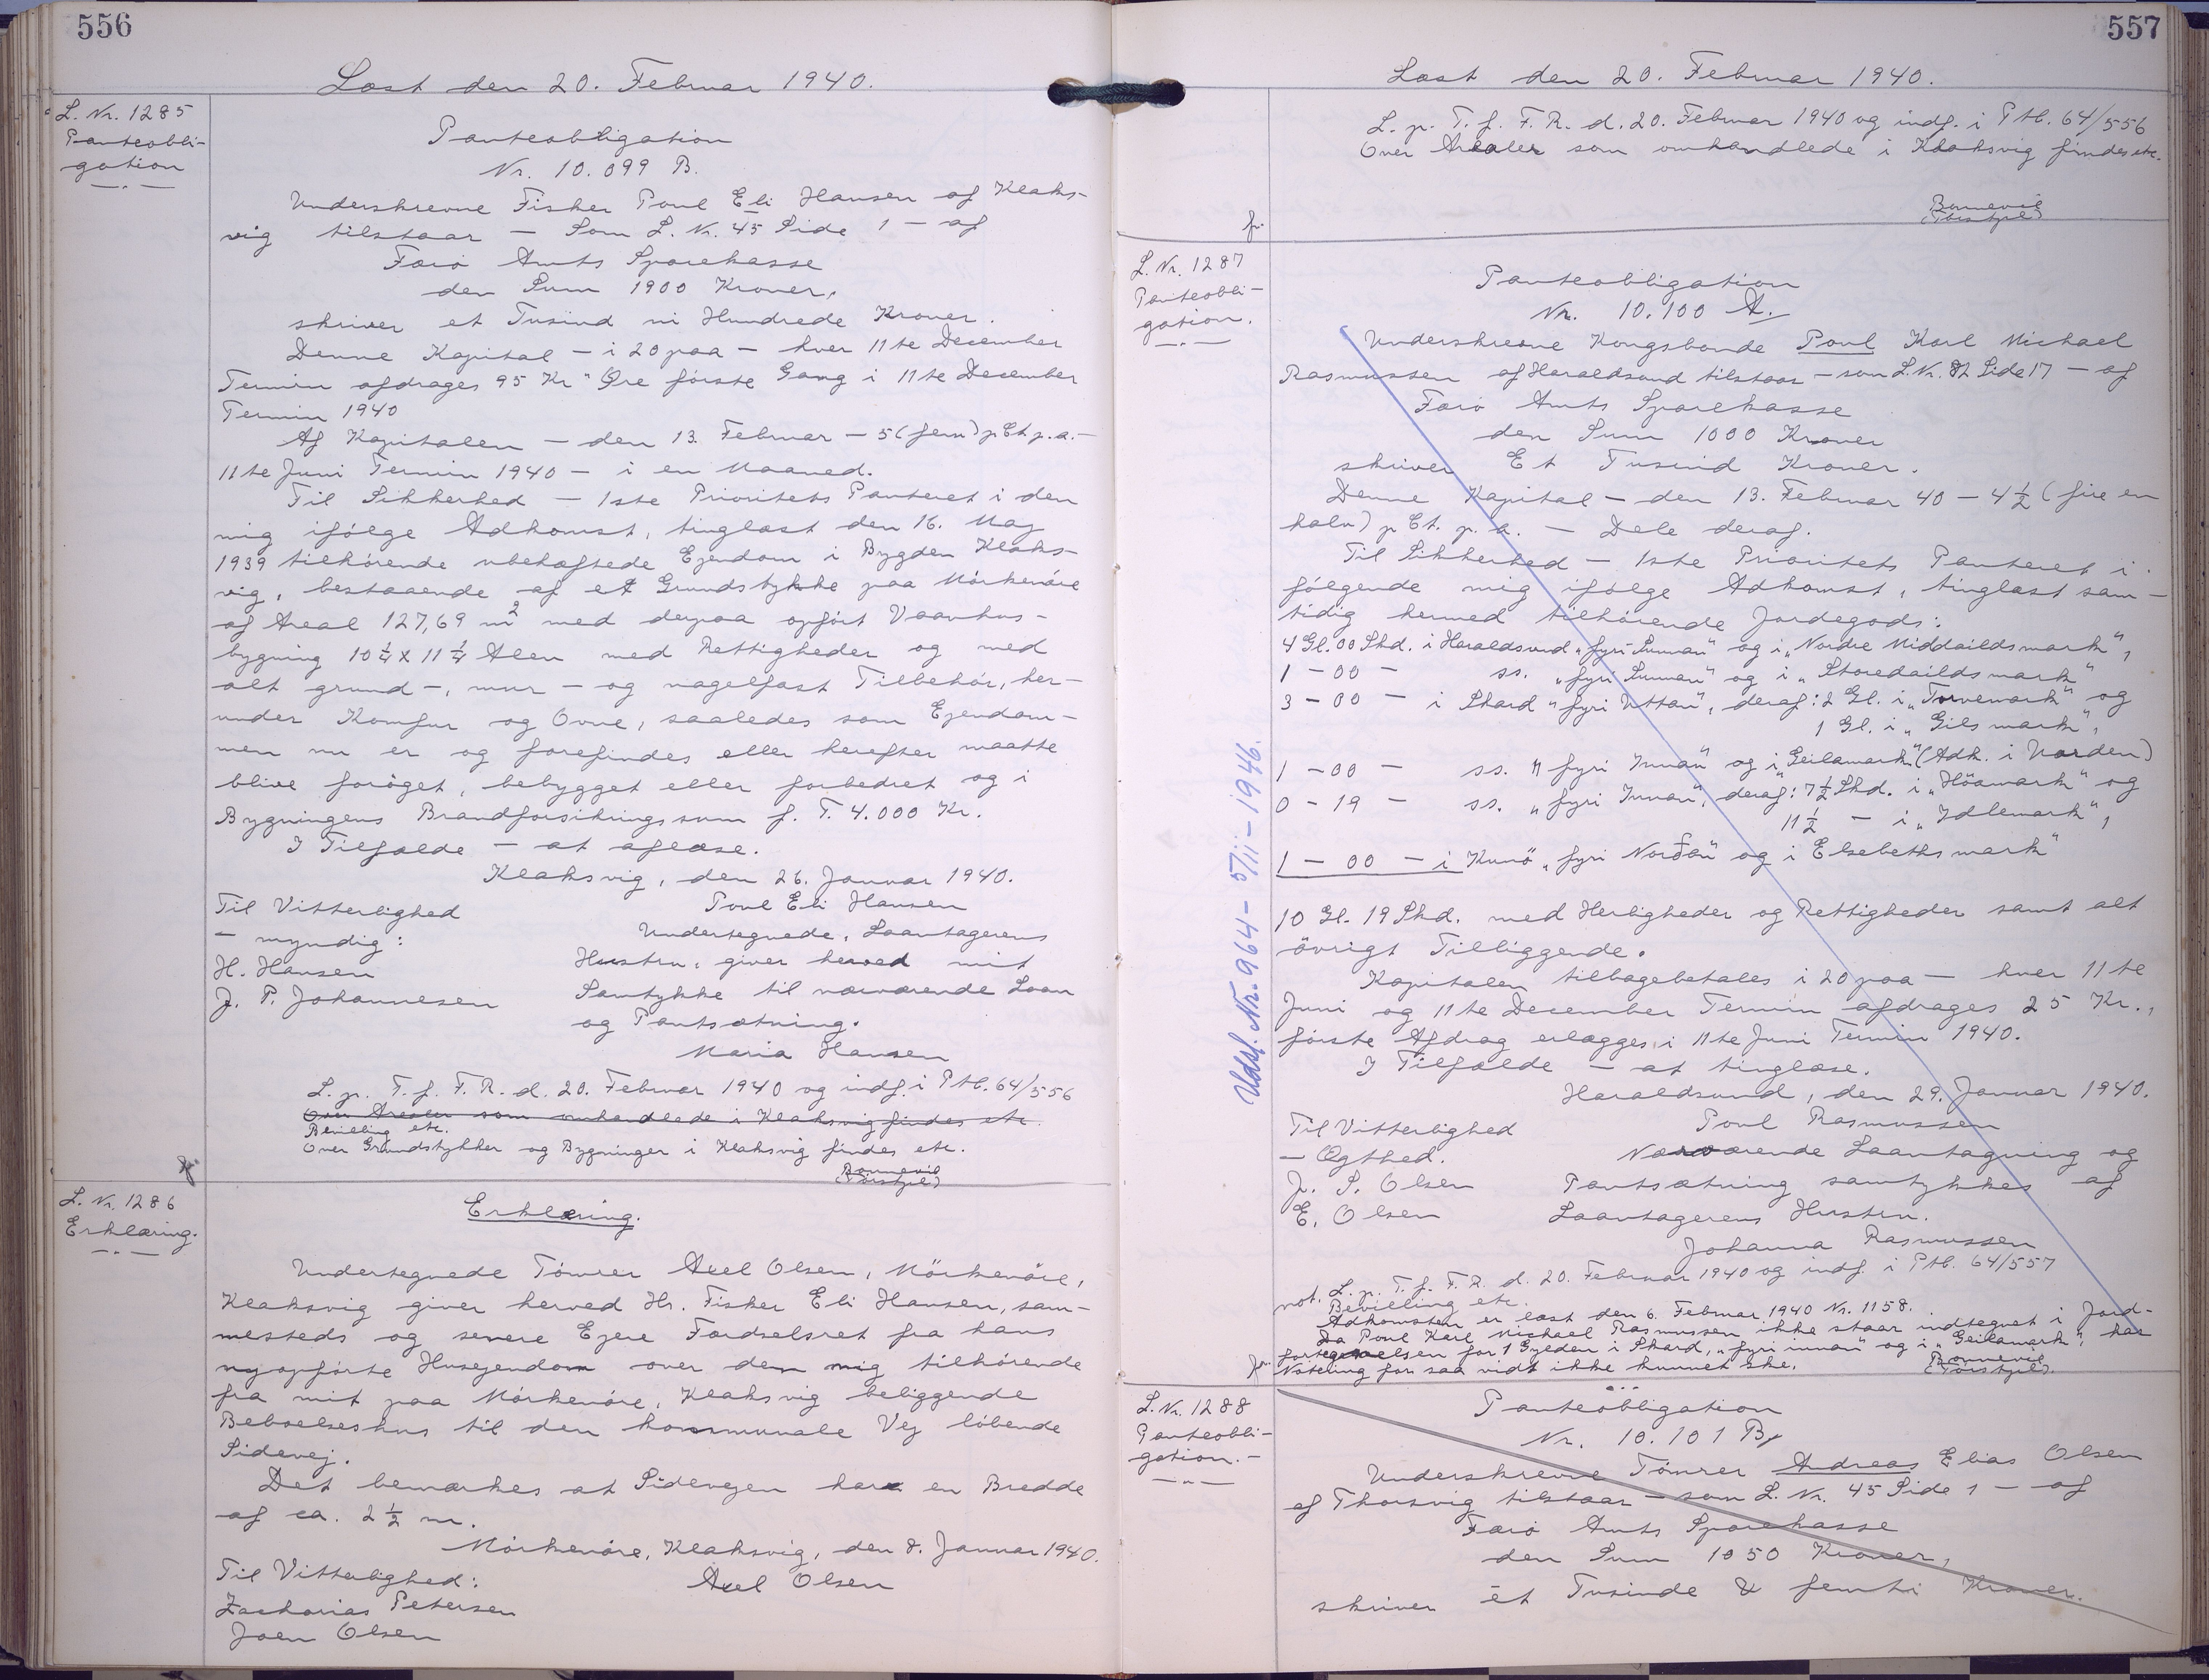 556
Læst den 20. Februar 1940.
L. Nr. 1285
Panteobli-
gation
Panteobligation
Nr. 10.099 B.
Underskrevne Fisker Poul Eli Hansen af Klaks-
vig tilstaar - Som L. Nr. 45 Side 1 - af
Færø Amts Sparekasse
den Sum 1900 Kroner,
skriver et Tusind ni Hundrede Kroner.
Denne Kapital - i 20 paa - hver 11te December
Termin afdrages 95 Kr " Øre første Gang i 11te December
Termin 1940
Af Kapitalen - den 13. Februar - 5 (fem) p Ct p. a. -
11te Juni Termin 1940 - i en Maaned.
Til Sikkerhed - 1ste Prioritets Panteret i den
mig ifølge Adkomst, tinglæst den 16. Maj
1939 tilhørende ubehæftede Ejendom i Bygden Klaks-
vig, bestaaende af et Grundstykke paa Mörkenöre
af Areal 127,69 m² med derpaa opført Vaanhus-
bygning 10 1/4 x 11 1/4 Alen med Rettigheder og med
alt grund-, mur- og nagelfast Tilbehør, her-
under Komfur og Ovne, saaledes som Ejendom-
men nu er og forefindes eller herefter maatte
blive forøget, bebygget eller forbedret og i
Bygningens Brandforsikringssum f. T. 4.000 Kr.
I Tilfælde - at aflæse.
Klaksvig, den 26. Januar 1940.
Til Vitterlighed
- myndig:
H. Hansen
J. P. Johannesen
Poul Eli Hansen
Undertegnede, Laantagerens
Hustru, giver herved mit
Samtykke til nærværende Laan
og Pantsætning.
Maria Hansen
L. p. T. f. F. R. d. 20. Februar 1940 og indf. i Ptb. 64/556
Over Arealer som omhandlede i Klaksvig findes etc.
Bevilling etc.
Over Grundstykker og Bygninger i Klaksvig findes etc.
Bonnevie
L. Nr. 1286
Erklæring.
Erklæring.
Undertegnede Tömrer Axel Olsen, Mörkenöre,
Klaksvig giver herved Hr. Fisker Eli Hansen, sam-
mesteds og senere Ejere Færdselsret fra hans
nyopførte Husejendom over den mig tilhørende
fra mit paa Mörkenöre, Klaksvig beliggende
Beboelseshus til den kommunale Vej løbende
Sidevej.
Det bemærkes at Sidevejen har en Bredde
af ca. 2 1/2 m.
Mörkenöre, Klaksvig, den 8. Januar 1940.
Til Vitterlighed:
Axel Olsen
Zacharias Petersen
Joen Olsen
557
Læst den 20. Februar 1940.
L. p. T. f. F. R. d. 20. Februar 1940 og indf. i Ptb. 64/556
Over Arealer som omhandlede i Klaksvig findes etc.
Bonnevie
L. Nr. 1287
Panteobli-
gation.
Panteobligation
Nr. 10.100 A.
Underskrevne Kongsbonde Poul Karl Michael
Rasmussen af Haraldsund tilstaar - som L. Nr. 82 Side 17 - af
Færø Amts Sparekasse
den Sum 1000 Kroner
skriver Et Tusind Kroner.
Denne Kapital - den 13. Februar 40 - 4 1/2 (fire en
halv) p Ct. p. a. - Dele deraf.
Til Sikkerhed - 1ste Prioritets Panteret i
følgende mig ifølge Adkomst, tinglæst sam-
tidig hermed tilhørende Jordegods:
4 Gl. 00 Skd. i Haraldsund "fyri Sunnan" og i "Nordre Middaildsmark",
1 - 00 - ss. "fyri Sunnan" og i "Storedaildsmark"
3 - 00 - i Skard "fyri Uttan", deraf: 2 Gl. i "Torvemark" og
1 Gl. i "Gilsmark",
1 - 00 - ss. "fyri Innan" og i "Geilamark" (Adk. i Uorden)
0 - 19 - ss. "fyri Innan", deraf: 7 1/2 Skd. i "Höamark" og
11 1/2 - i "Idlemark",
1 - 00 - i Kunö "fyri Norðan" og i Elsebethsmark"
10 Gl. 19 Skd. med Herligheder og Rettigheder samt alt
övrigt Tilliggende.
Kapitalen tilbagebetales i 20 paa - hver 11te
Juni og 11te December Termin afdrages 25 Kr.,
første Afdrag erlægges i 11te Juni Termin 1940.
I Tilfælde - at tinglæse.
Haraldsund, den 29. Januar 1940.
Til Vitterlighed
- Ægthed.
J. S. Olsen
E. Olsen
Poul Rasmussen
Nærværende Laantagning og
Pantsætning samtykkes af
Laantagerens Hustru.
Johanna Rasmussen
not. L. p. T. f. F. R. d. 20. Februar 1940 og indf. i Ptb. 64/557
Bevilling etc.
Adkomsten er læst den 6. Februar 1940 Nr. 1158.
Da Poul Karl Michael Rasmussen ikke staar indtegnet i Jord-
fortegnelsen for 1 Gylden i Skard, "fyri innan" og i "Geilamark", har
Notering for saa vidt ikke kunnet ske.
Bonnevie
Udsl. Nr. 964 - 5/11 - 1946.
L. Nr. 1288
Panteobli-
gation.-
Panteobligation
Nr. 10.101 B
Underskrevne Tömrer Andreas Elias Olsen
af Thorsvig tilstaar - som L. Nr. 45 Side 1 - af
Færø Amts Sparekasse
den Sum 1050 Kroner,
skriver ét Tusinde & femti Kroner.